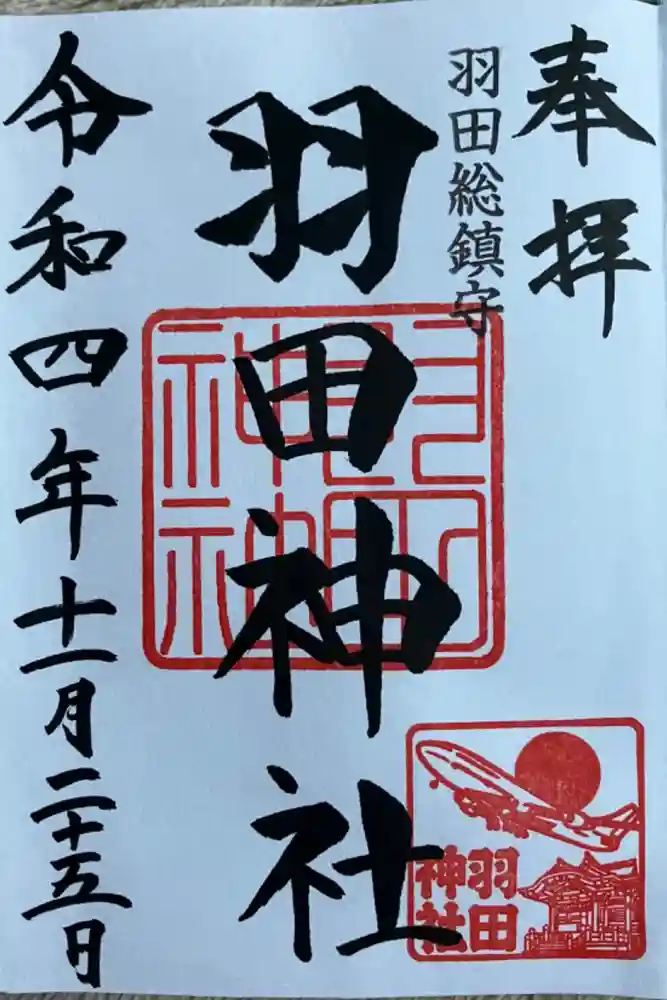 奉拝
羽田総鎮守
羽田神社
令和四年十一月二十五日
羽田
神社